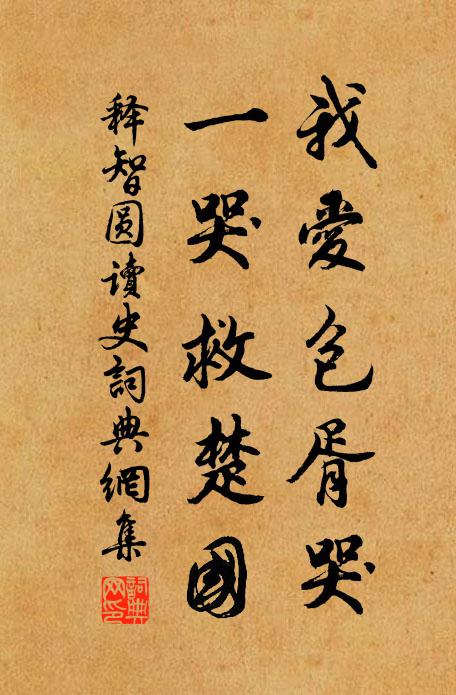 我愛包胥哭
一哭救楚國
释智圓讀史詞典網集
詞典網印